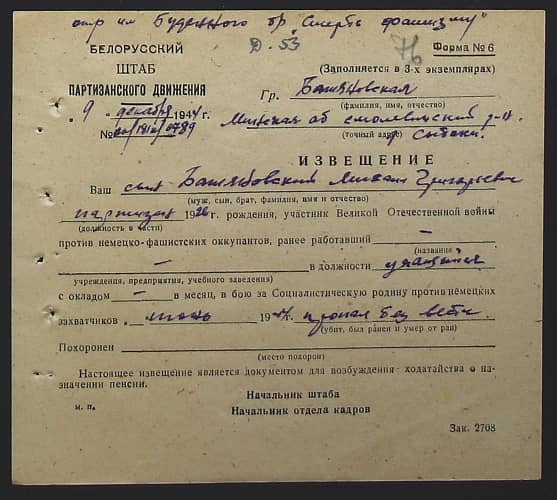 отр им Буденного бр. "Смерть фашизму"
Д-53 76
БЕЛОРУССКИЙ
ШТАБ
ПАРТИЗАНСКОГО ДВИЖЕНИЯ
Форма № 6
(Заполняется в 3-х экземплярах)
Гр.
(фамилия, имя, отчество)
„9" декабря 1944 г.
№
Минская об смолевичский р-н.
(точный адрес)
д.
ИЗВЕЩЕНИЕ
Ваш сын Михаил Григорьевич
(муж, сын, брат, фамилия, имя и отчество)
партизан 1926 г. рождения, участник Великой Отечественной войны
(должность в части)
против немецко-фашистских оккупантов, ранее работавший —
(название
— в должности учащийся
учреждения, предприятия, учебного заведения)
с окладом — в месяц, в бою за Социалистическую родину против немецких
захватчиков „ июнь 1944 г. пропал без вести.
(убит, был ранен и умер от ран)
Похоронен
(место похорон)
Настоящее извещение является документом для возбуждения ходатайства о на-
значении пенсии.
Начальник штаба
м. п.
Начальник отдела кадров
Зак. 2708